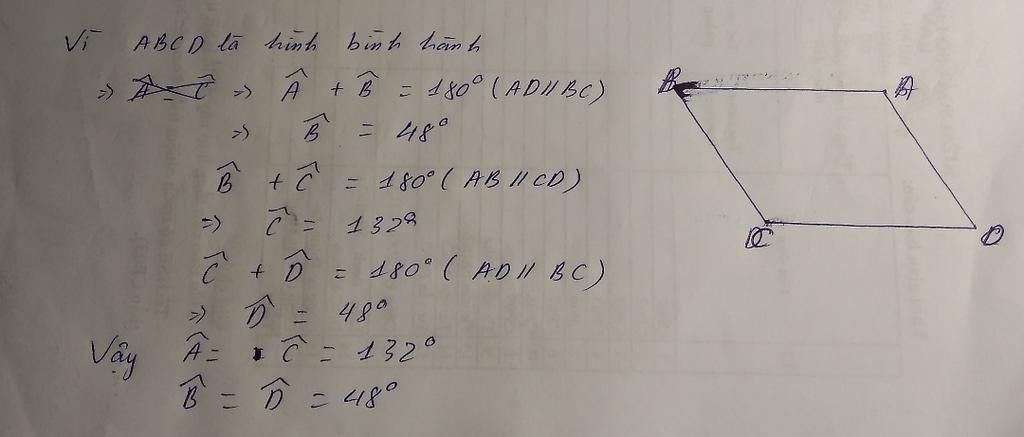 Vì ABCD là hình bình hành
=> Â = Ĉ => Â + B̂ = 180° (AD // BC)
=> B̂ = 48°
B̂ + Ĉ = 180° (AB // CD)
=> Ĉ = 132°
Ĉ + D̂ = 180° (AD // BC)
=> D̂ = 48°
Vậy Â = Ĉ = 132°
B̂ = D̂ = 48°
B A
C D